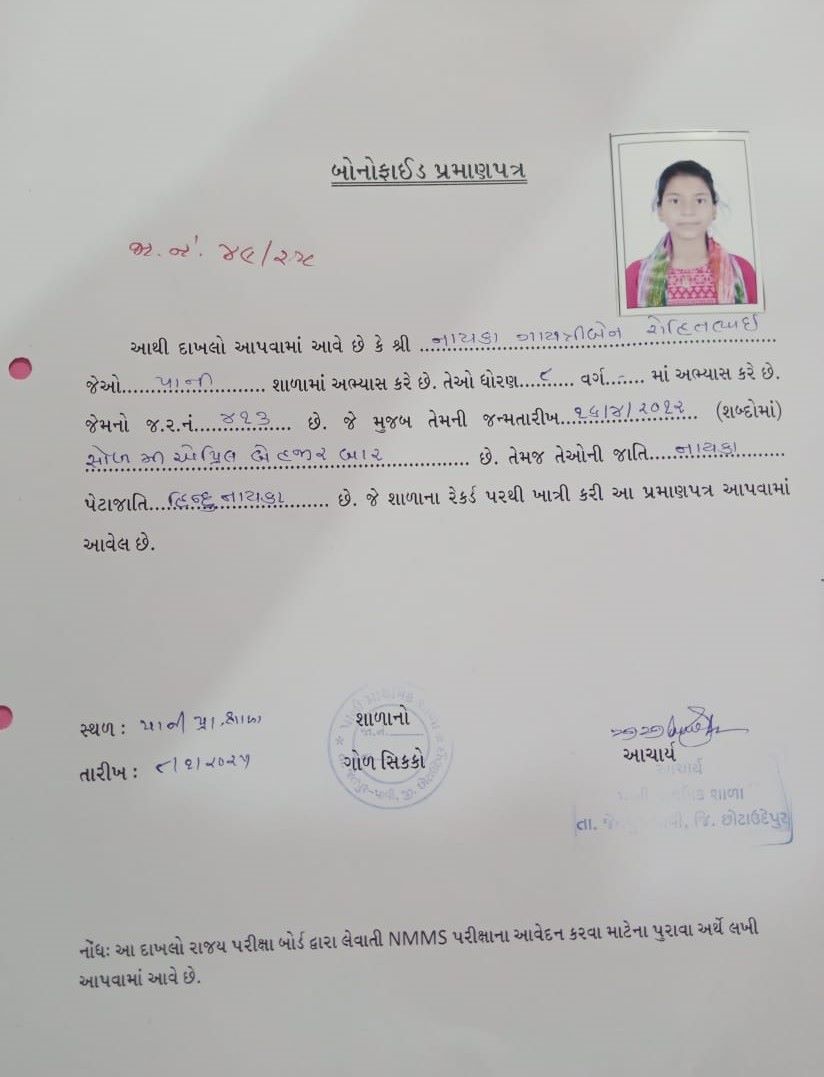 બોનોફાઈડ પ્રમાણપત્ર
જા.નં. ૪૯/૨૫
આથી દાખલો આપવામાં આવે છે કે શ્રી ..નાયકા ગાયત્રીબેન રોહિતભાઈ
જેઓ....પાની........... શાળામાં અભ્યાસ કરે છે. તેઓ ધોરણ....૮.... વર્ગ...-.... માં અભ્યાસ કરે છે.
જેમનો જ.ર.નં.....૪૨૩...... છે. જે મુજબ તેમની જન્મતારીખ..૧૬/૪/૨૦૧૨.. (શબ્દોમાં)
સોળ મી એપ્રિલ બે હજાર બાર ............ છે. તેમજ તેઓની જાતિ....નાયકા.......
પેટાજાતિ...હિન્દુ નાયકા....... છે. જે શાળાના રેકર્ડ પરથી ખાત્રી કરી આ પ્રમાણપત્ર આપવામાં
આવેલ છે.
સ્થળ : પાની પ્રા.શાળા
તારીખ : ૮/૧/૨૦૨૫
શાળાનો
જા.ન.
ગોળ સિક્કો
આચાર્ય
આચાર્ય
શાળા
તા. જે પાવી, જિ. છોટાઉદેપુર
નોંધ: આ દાખલો રાજય પરીક્ષા બોર્ડ દ્વારા લેવાતી NMMS પરીક્ષાના આવેદન કરવા માટેના પુરાવા અર્થે લખી
આપવામાં આવે છે.